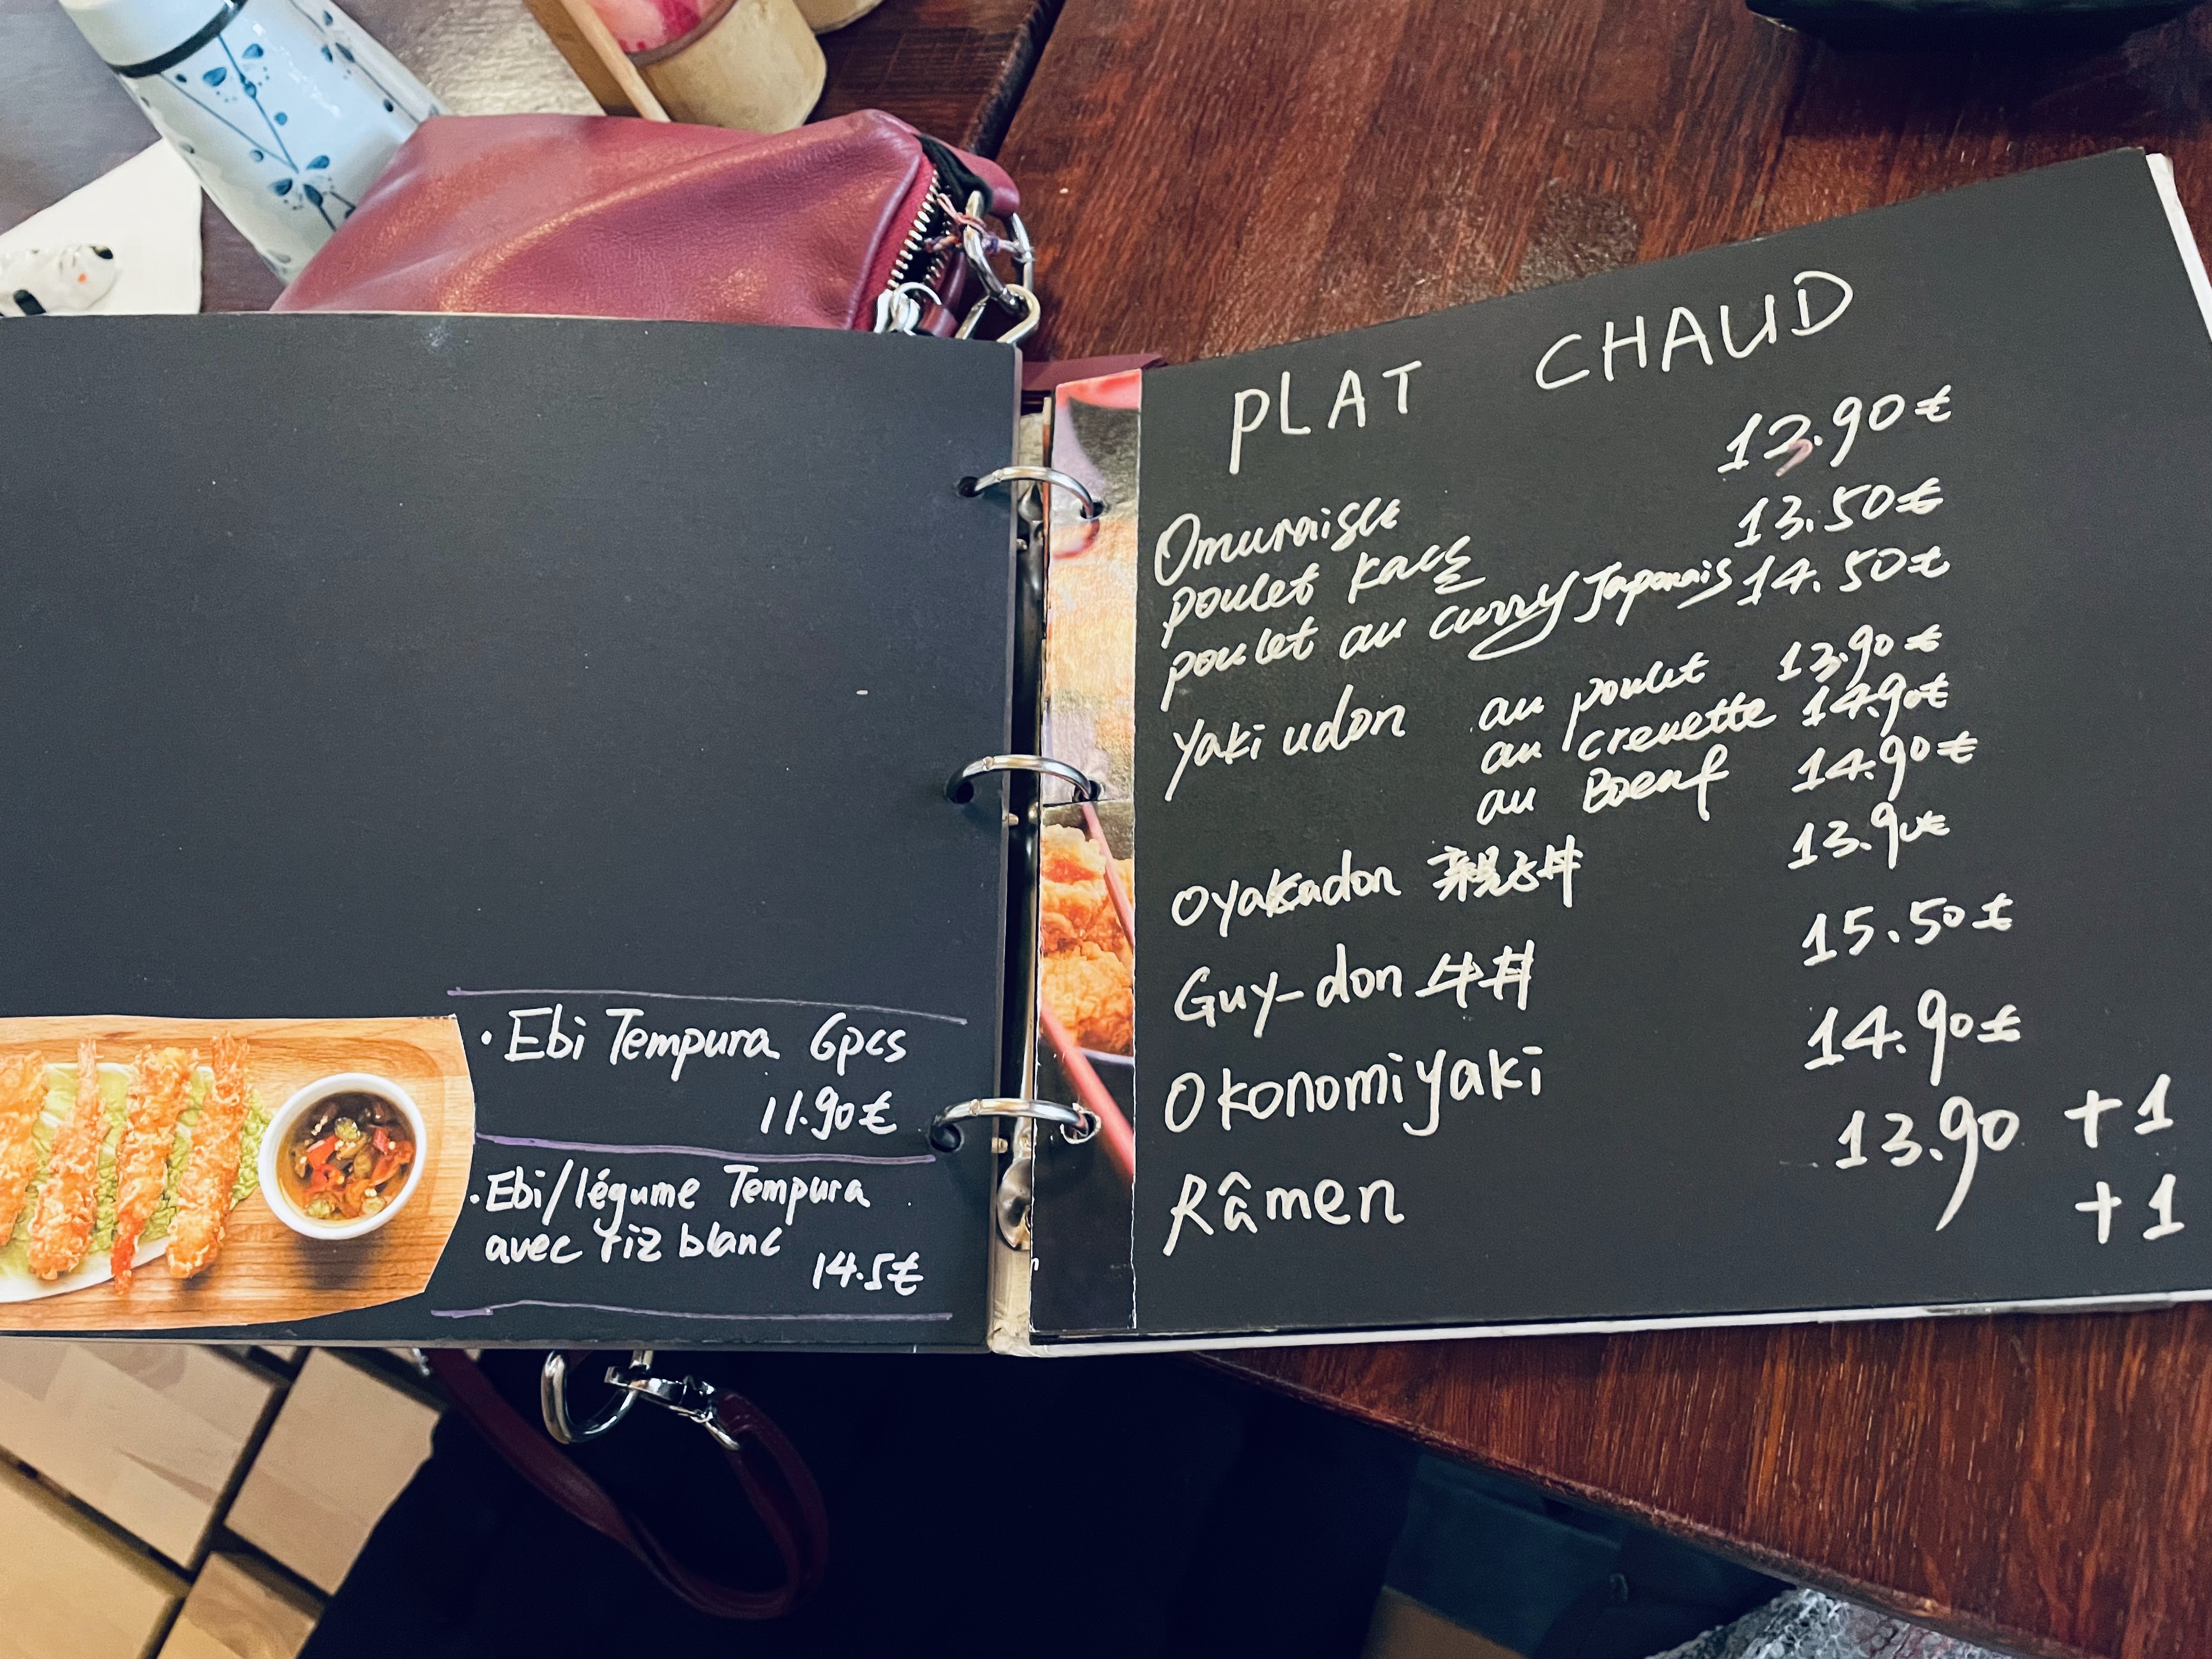 · Ebi Tempura 6pcs
11.90€
· Ebi/légume Tempura
avec riz blanc
14.5€
PLAT CHAUD
Omuraisu 13.90€
poulet 13.50€
poulet au curry Japonais 14.50€
yaki udon au poulet 13.90€
au crevette 14.90€
au Boeuf 14.90€
Oyakadon 親子丼 13.90€
Guy-don 牛丼 15.50€
Okonomiyaki 14.90€
Râmen 13.90 +1
+1